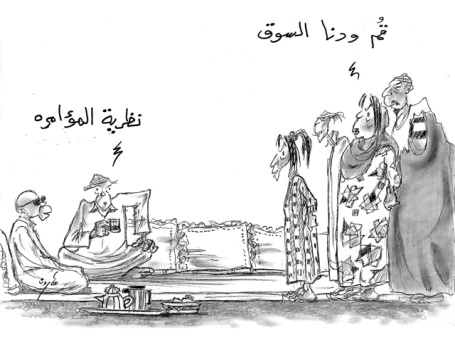 قُم ودنا السوق
نظرية المؤامره